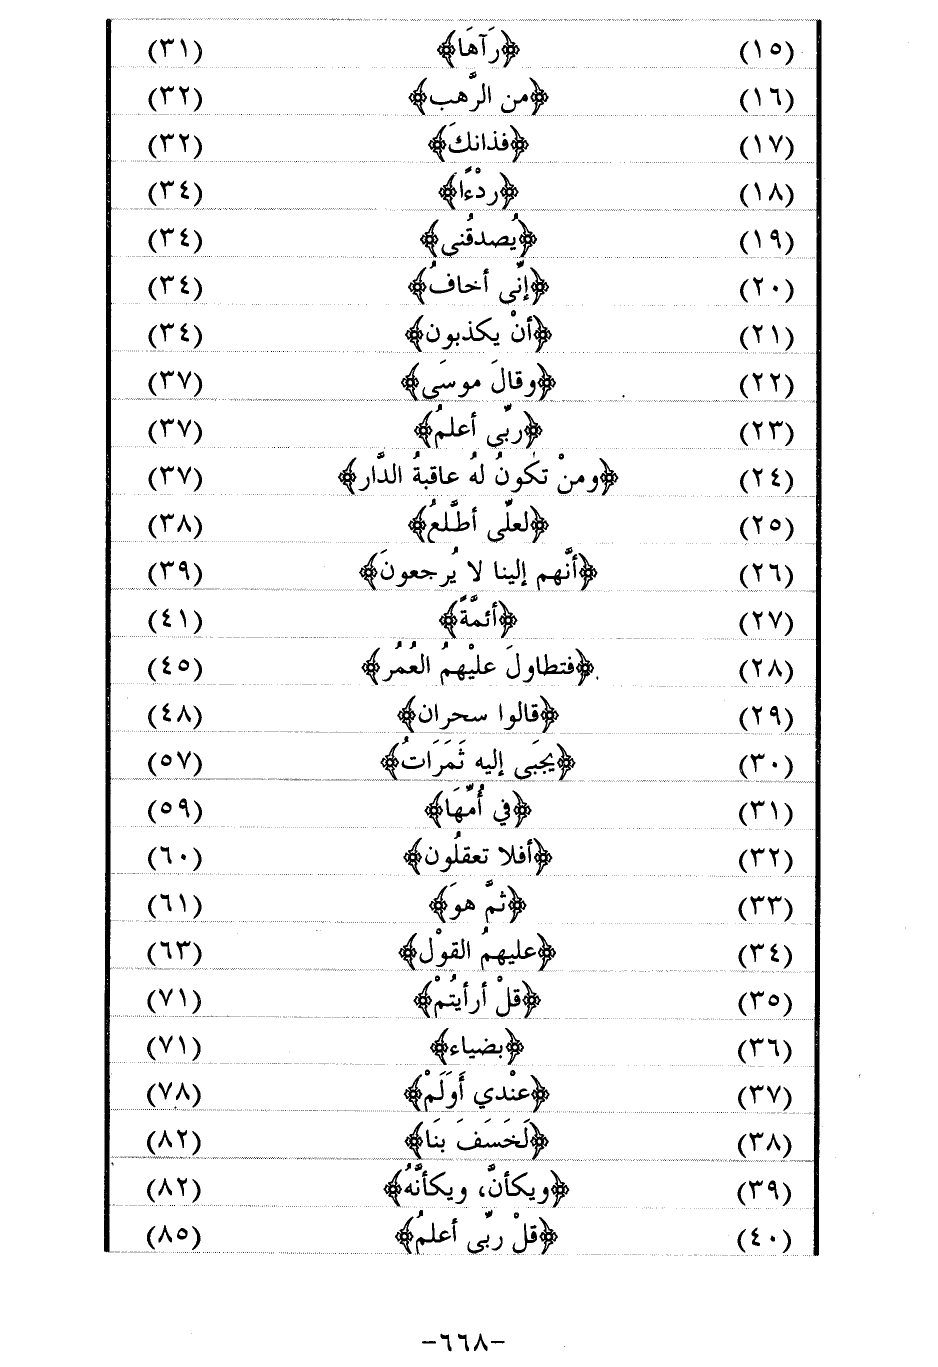 (١٥) ﴿رَآهَا﴾ (٣١)
(١٦) ﴿من الرَّهب﴾ (٣٢)
(١٧) ﴿فذانكَ﴾ (٣٢)
(١٨) ﴿ردْءًا﴾ (٣٤)
(١٩) ﴿يُصدقُنى﴾ (٣٤)
(٢٠) ﴿إنِّى أخافُ﴾ (٣٤)
(٢١) ﴿أنْ يكذبون﴾ (٣٤)
(٢٢) ﴿وقالَ موسَى﴾ (٣٧)
(٢٣) ﴿ربِّى أعلمُ﴾ (٣٧)
(٢٤) ﴿ومنْ تكونُ لهُ عاقبةُ الدَّار﴾ (٣٧)
(٢٥) ﴿لعلِّى أطَّلعُ﴾ (٣٨)
(٢٦) ﴿أنَّهم إلينا لا يُرجعونَ﴾ (٣٩)
(٢٧) ﴿أئمَّةً﴾ (٤١)
(٢٨) ﴿فتطاولَ عليْهمُ العُمُر﴾ (٤٥)
(٢٩) ﴿قالوا سحران﴾ (٤٨)
(٣٠) ﴿يجبَى إليه ثَمَرَاتُ﴾ (٥٧)
(٣١) ﴿في أُمِّهَا﴾ (٥٩)
(٣٢) ﴿أفلا تعقلُون﴾ (٦٠)
(٣٣) ﴿ثمَّ هوَ﴾ (٦١)
(٣٤) ﴿عليهمُ القوْل﴾ (٦٣)
(٣٥) ﴿قلْ أرأيتُمْ﴾ (٧١)
(٣٦) ﴿بضياء﴾ (٧١)
(٣٧) ﴿عنْدي أَوَلَمْ﴾ (٧٨)
(٣٨) ﴿لَخَسَفَ بنَا﴾ (٨٢)
(٣٩) ﴿ويكأنَّ، ويكأنَّهُ﴾ (٨٢)
(٤٠) ﴿قلْ ربِّى أعلمُ﴾ (٨٥)
-٦٦٨-